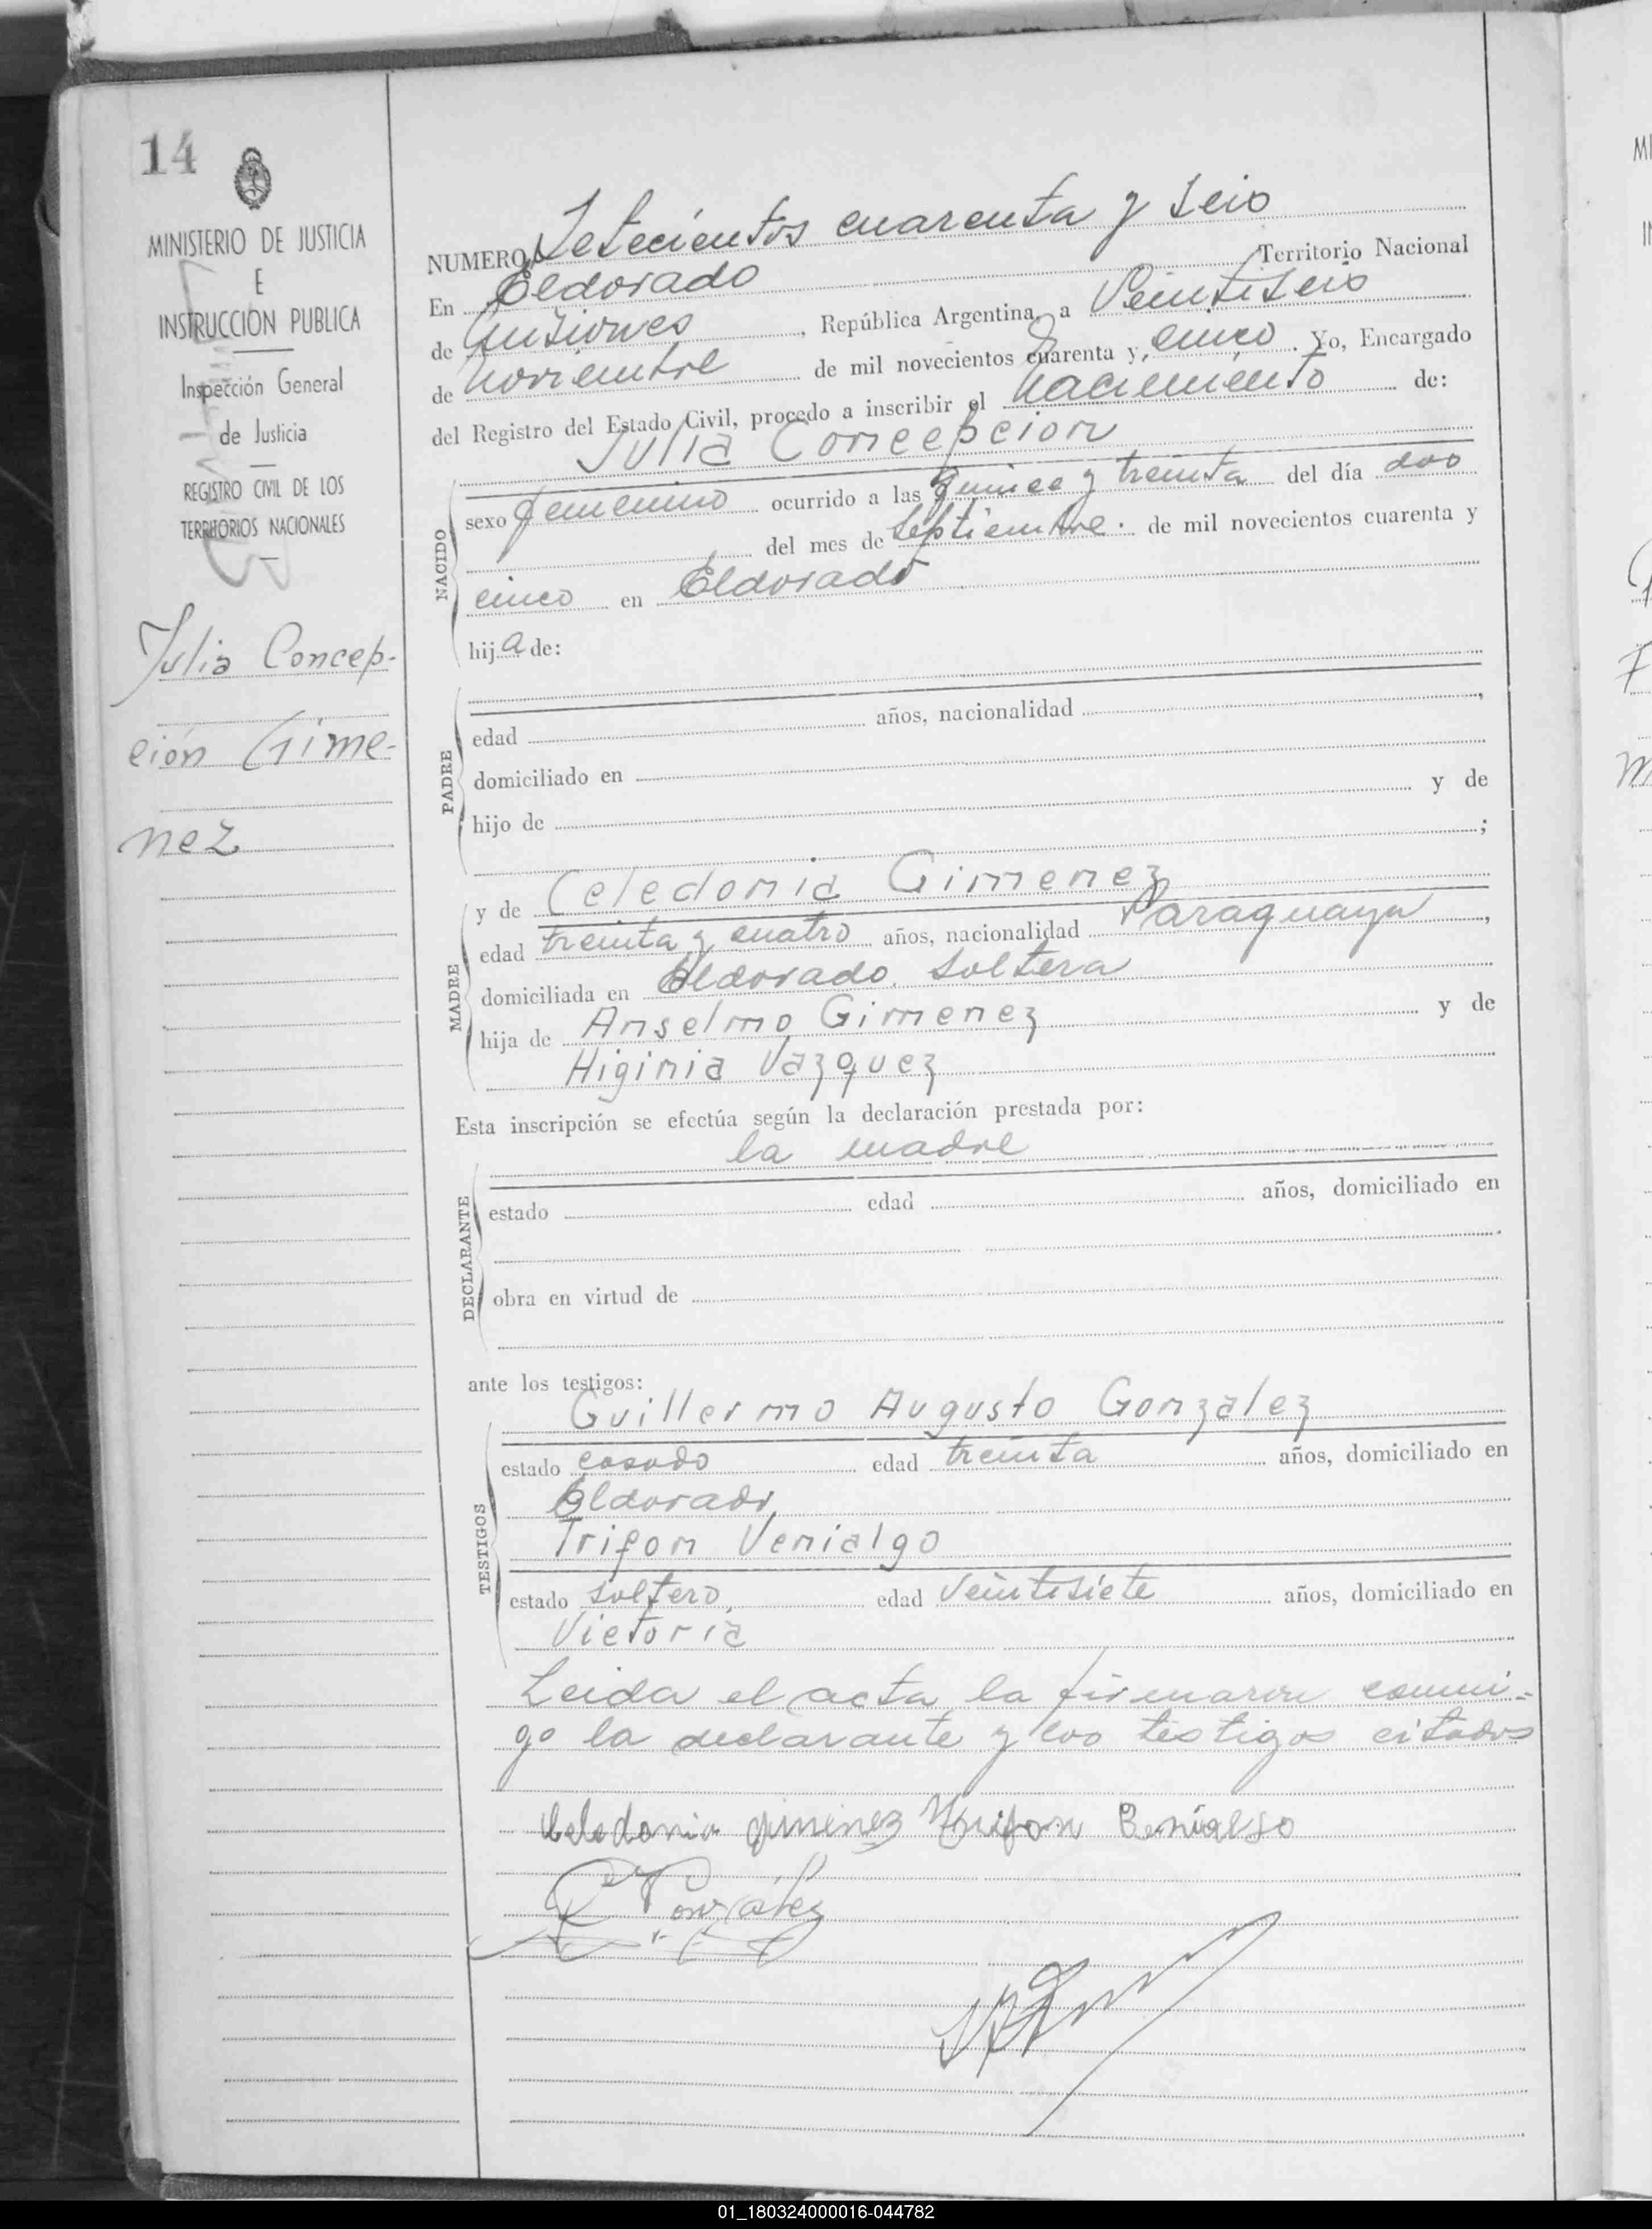 14
MINISTERIO DE JUSTICIA
E
INSTRUCCIÓN PUBLICA
Inspección General
de Justicia
REGISTRO CIVIL DE LOS
TERRITORIOS NACIONALES
Julia Concep-
ción Gime-
nez
NUMERO Setecientos cuarenta y seis
En Eldorado Territorio Nacional
de Misiones, República Argentina, a Veintiseis
de noviembre de mil novecientos cuarenta y, cinco. Yo, Encargado
del Registro del Estado Civil, procedo a inscribir el nacimiento de:
Julia Concepcion
NACIDO
sexo femenino ocurrido a las quince y treinta del día dos
del mes de septiembre. de mil novecientos cuarenta y
cinco en Eldorado
hija de:
PADRE
edad años, nacionalidad ,
domiciliado en
hijo de y de
;
y de Celedonia Gimenez
MADRE
edad treinta y cuatro años, nacionalidad Paraguaya,
domiciliada en Eldorado, soltera
hija de Anselmo Gimenez y de
Higinia Vazquez
Esta inscripción se efectúa según la declaración prestada por:
la madre
DECLARANTE
estado edad años, domiciliado en
obra en virtud de
ante los testigos:
Guillermo Augusto Gonzalez
TESTIGOS
estado casado edad treinta años, domiciliado en
Eldorado,
Trifon Venialgo
estado soltero, edad veintisiete años, domiciliado en
Victoria
Leida el acta la firmaron conmi-
go la declarante y los testigos citados
Celedonia gimenez Trifon Benialgo
Gonzalez
01_180324000016-044782